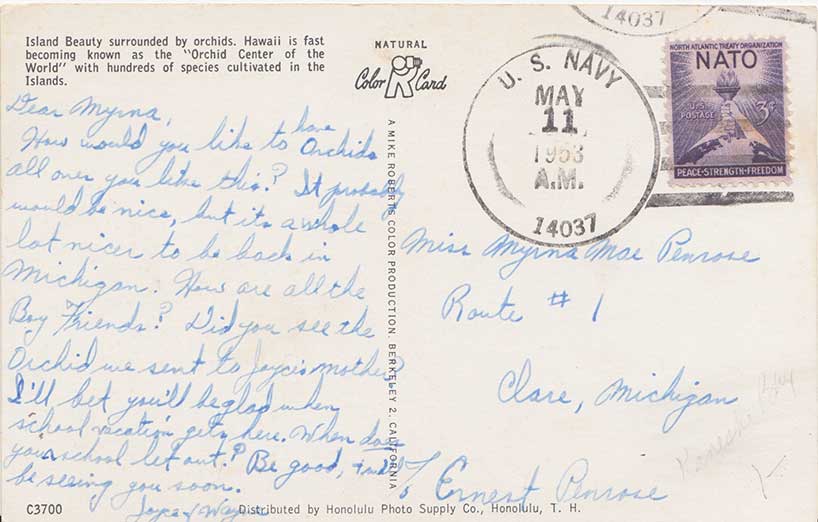 Island Beauty surrounded by orchids. Hawaii is fast
becoming known as the "Orchid Center of the
World" with hundreds of species cultivated in the
Islands.
Dear Myrna,
How would you like to have Orchids
all over you like this? It probaly
would be nice, but its a whole
lot nicer to be back in
Michigan. How are all the
Boy Friends? Did you see the
Orchid we sent to Joyce's mother?
I'll bet you'll be glad when
school vacation gets here. When does
your school let out? Be good, and
be seeing you soon.
Joyce & Wayne
C3700
NATURAL
Color Card
A MIKE ROBERTS COLOR PRODUCTION. BERKELEY 2, CALIFORNIA
Distributed by Honolulu Photo Supply Co., Honolulu, T. H.
14037
U. S. NAVY
MAY
11
1953
A.M.
14037
NORTH ATLANTIC TREATY ORGANIZATION
NATO
U.S.
POSTAGE
3¢
PEACE-STRENGTH-FREEDOM
Miss Myrna Mae Penrose
Route # 1
Clare, Michigan
c/o Ernest Penrose